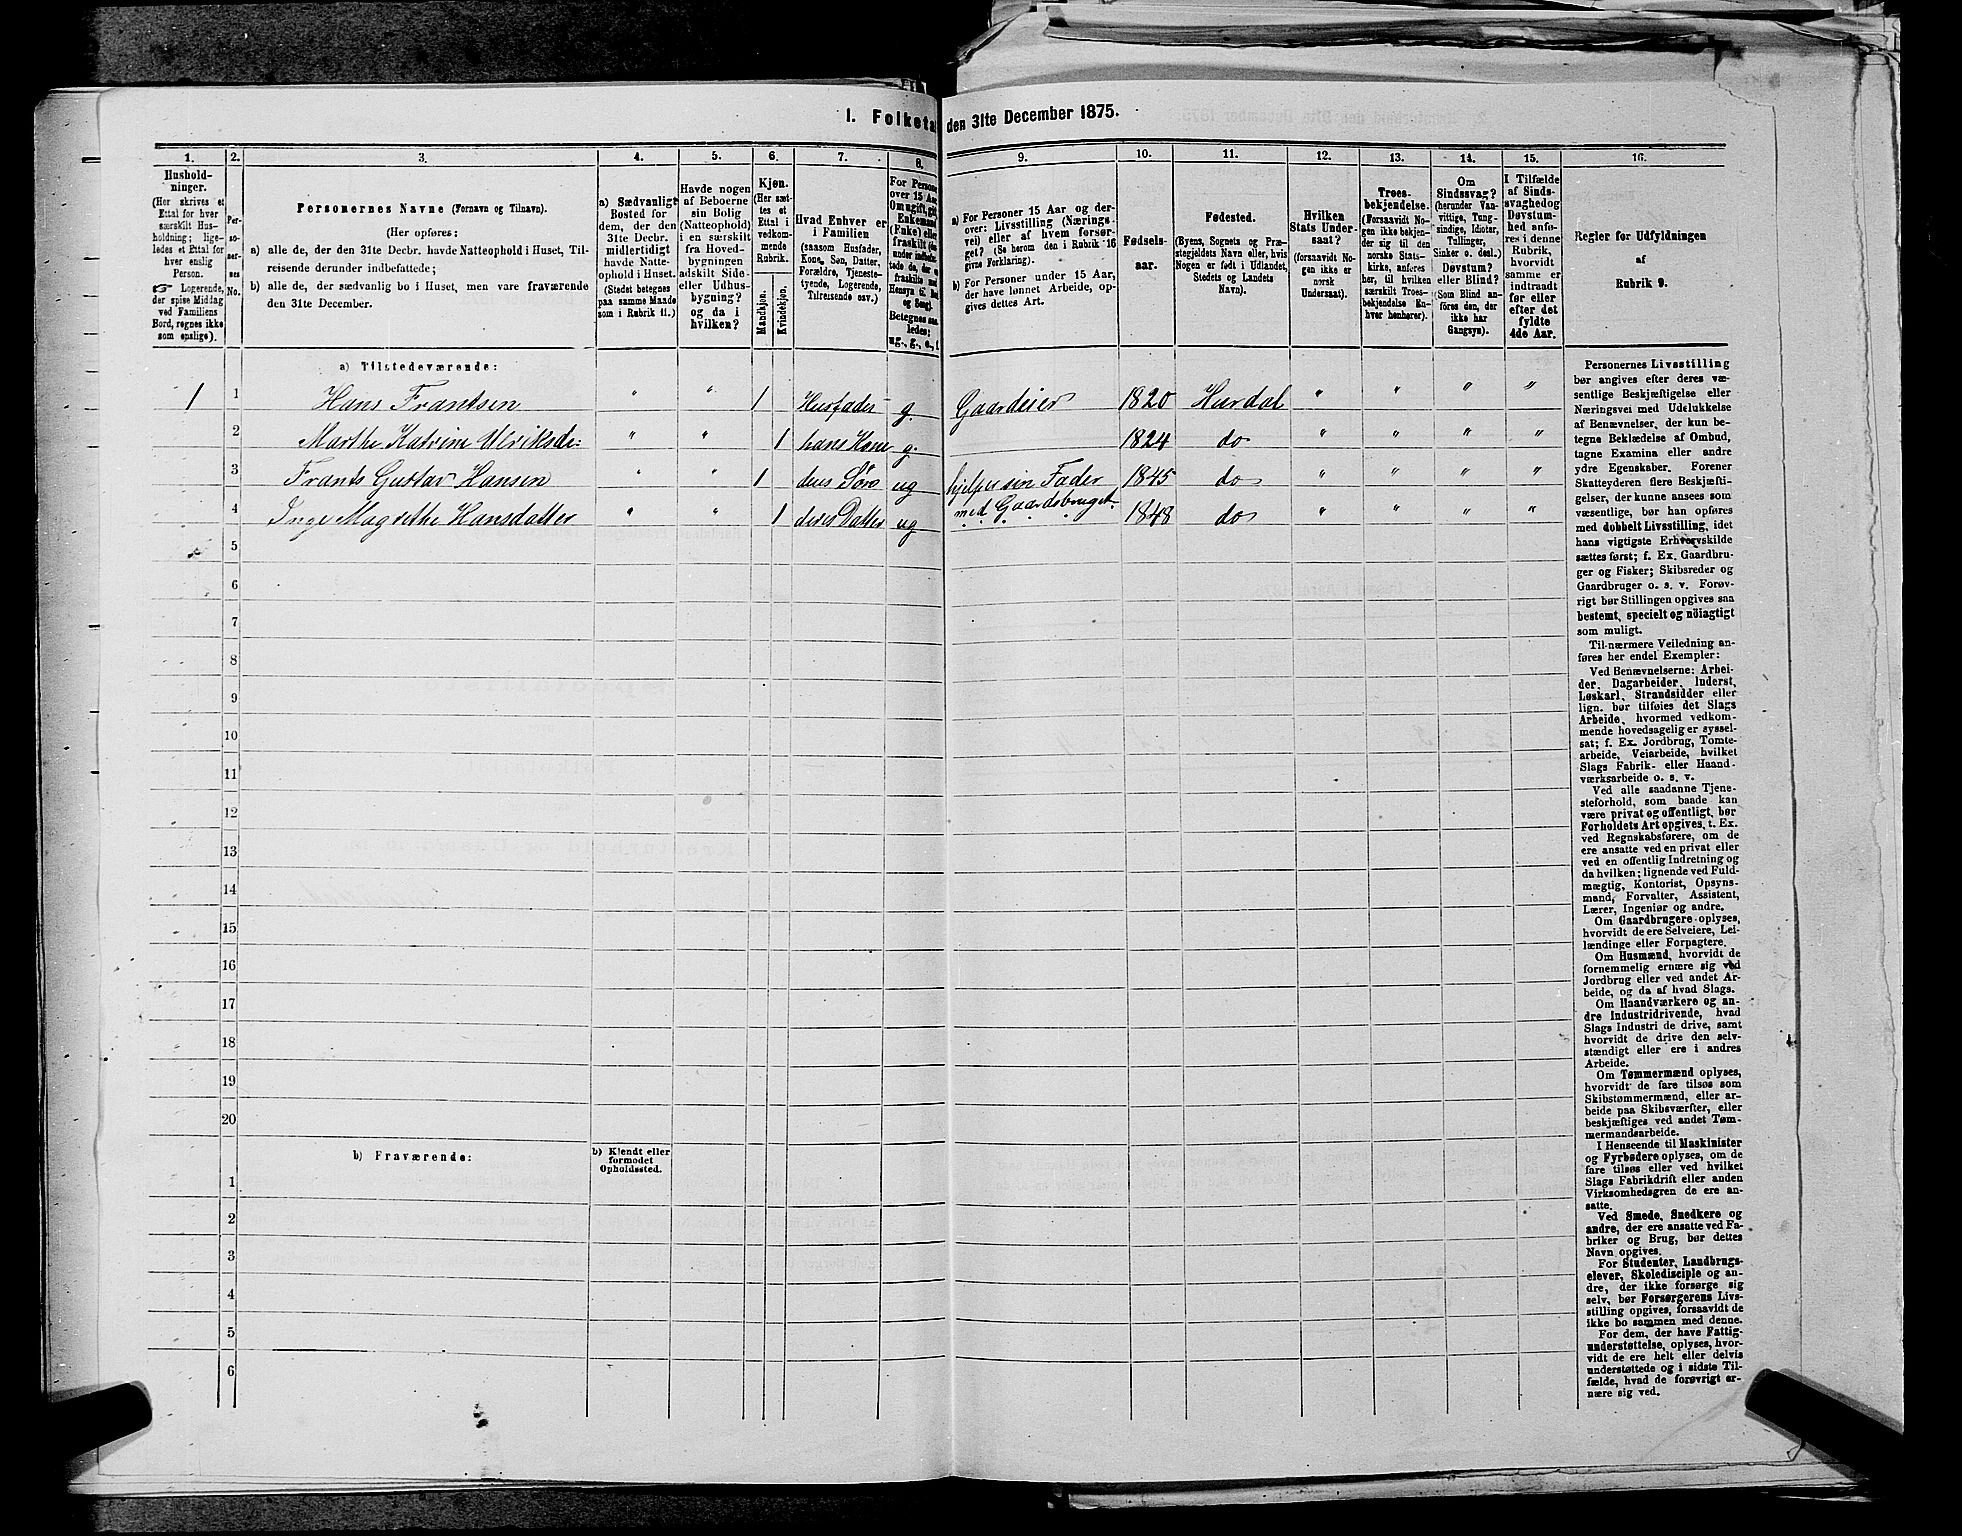 1. Folketa den 31te December 1875.
1. 2. 3. 4. 5. 6. 7. 8. 9. 10. 11. 12. 13. 14. 15. 16.
Hushold-
ninger.
(Her skrives et
Ettal for hver
særskilt Hus-
holdning; lige-
ledes et Ettal for
hver enslig
Person.
☞ Logerende,
der spise Middag
ved Familiens
Bord, regnes ikke
som enslige).
Per-
so-
ner-
nes
No.
Personernes Navne (Fornavn og Tilnavn).
(Her opføres:
a) alle de, der den 31te Decbr. havde Natteophold i Huset, Til-
reisende derunder indbefattede;
b) alle de, der sædvanlig bo i Huset, men vare fraværende
den 31te December.
a) Sædvanligt
Bosted for
dem, der den
31te Decbr.
midlertidigt
havde Natte-
ophold i Huset.
(Stedet betegnes
paa samme Maade
som i Rubrik 11.)
Havde nogen
af Beboerne
sin Bolig
(Natteophold)
i en særskilt
fra Hoved-
bygningen
adskilt Side-
eller Udhus-
bygning?
og da i
hvilken?
Kjøn.
(Her sæt-
tes et
Ettal i
vedkom-
mende
Rubrik.
Mandkjøn.
Kvindekjøn.
Hvad Enhver er
i Familien
(saasom Husfader,
Kone, Søn, Datter,
Forældre, Tjeneste-
tyende, Logerende,
Tilreisende osv.)
For Persone
over 15 Aar
Omugift, gift
Enkemand
(Enke) eller
fraskilt
Betegnes saa-
ledes:
ug., g., e., f.
a) For Personer 15 Aar og der-
over: Livsstilling (Nærings-
vei) eller af hvem forsør-
get? (Se herom den i Rubrik 16
givne Forklaring).
b) For Personer under 15 Aar,
der have lønnet Arbeide, op-
gives dettes Art.
Fødsels-
aar.
Fødested.
(Byens, Sognets og Præ-
stegjeldets Navn eller, hvis
Nogen er født i Udlandet,
Stedets og Landets
Navn).
Hvilken
Stats Under-
saat?
(forsaavidt No-
gen ikke er
norsk
Undersaat).
Troes-
bekjendelse.
(Forsaavidt No-
gen ikke bekjen-
der sig til den
norske Stats-
kirke, anføres
her, til hvilken
særskilt Troes-
bekjendelse En-
hver henhører).
Om
Sindssvag?
(herunder Van-
vittige, Tung-
sindige, Idioter,
Tullinger,
Sinker o. desl.)
Døvstum?
eller Blind?
(Som Blind an-
føres den, der
ikke har
Gangsyn).
I Tilfælde
af Sinds-
svaghed og
Døvstum-
hed anfø-
res i denne
Rubrik,
hvorvidt
samme er
indtraadt
før eller
efter det
fyldte
4de Aar.
Regler for Udfyldningen
af
Rubrik 9.
a) Tilstedeværende:
1 1 Hans Frantsen " " 1 Husfader g. Gaardeier 1820 Hurdal " " " "
2 Marthe Katrine Ulriksda: " " 1 hans Kone g. 1824 do " " " "
3 Frants Gustav Hansen " " 1 deres Søn ug hjelper sin Fader 1845 do " " " "
med Gaardsbruget.
4 Inge Magrethe Hansdatter " " 1 deres Datter ug " " " 1848 do " " " "
5
6
7
8
9
10
11
12
13
14
15
16
17
18
19
20
b) Fraværende:
b) Kjendt eller
formodet
Opholdssted.
1
2
3
4
5
6
Personernes Livsstilling
bør angives efter deres væ-
sentlige Beskjæftigelse eller
Næringsvei med Udelukkelse
af Benævnelser, der kun be-
tegne Beklædelse af Ombud,
tagne Examina eller andre
ydre Egenskaber. Forener
Skatteyderen flere Beskjæfti-
gelser, der kunne ansees som
væsentlige, bør han opføres
med dobbelt Livsstilling, idet
hans vigtigste Erhvervskilde
sættes først; f. Ex. Gaardbru-
ger og Fisker; Skibsreder og
Gaardbruger o. s. v. Forøv-
rigt bør Stillingen opgives saa
bestemt, specielt og nöiagtigt
som muligt.
Til nærmere Veiledning an-
føres her endel Exempler:
Ved Benævnelserne: Arbei-
der, Dagarbeider, Inderst,
Løskarl, Strandsidder eller
lign. bør tilføies det Slags
Arbeide, hvormed vedkom-
mende hovedsagelig er syssel-
sat; f. Ex. Jordbrug, Tomte-
arbeide, Veiarbeide, hvilket
Slags Fabrik- eller Haand-
værksarbeide o. s. v.
Ved alle saadanne Tjene-
steforhold, som baade kan
være privat og offentligt, bør
Forholdets Art opgives, t. Ex.
ved Regnskabsførere, om de
ere ansatte ved en privat eller
ved en offentlig Indretning og
da hvilken; lignende ved Fuld-
mægtig, Kontorist, Opsyns-
mand, Forvalter, Assistent,
Lærer, Ingeniør og andre.
Om Gaardbrugere oplyses,
hvorvidt de ere Selveiere, Lei-
lændinge eller Forpagtere.
Om Husmænd, hvorvidt de
fornemmelig ernære sig ved
Jordbrug eller ved andet Ar-
beide, og da af hvad Slags.
Om Haandværkere og an-
dre Industridrivende, hvad
Slags Industri de drive, samt
hvorvidt de drive den selv-
stændigt eller ere i andres
Arbeide.
Om Tømmermænd oplyses,
hvorvidt de fare tilsøs som
Skibstømmermænd, eller ar-
beide paa Skibsværfter, eller
beskjæftiges ved andet Tøm-
mermandsarbeide.
I Henseende til Maskinister
og Fyrbødere oplyses, om de
fare tilsøs eller ved hvilket
Slags Fabrikdrift eller anden
Virksomhedsgren de ere an-
satte.
Ved Smede, Snedkere og
andre, der ere ansatte ved Fa-
briker og Brug, bør dettes
Navn opgives.
For Studenter, Landbrugs-
elever, Skoledisciple og an-
dre, der ikke forsørge sig
selv, bør Forsørgerens Livs-
stilling opgives, forsaavidt de
ikke bo sammen med denne.
For dem, der have Fattig-
understøttelse, oplyses, hvor-
vidt de ere helt eller delvis
understøttede og i sidste Til-
fælde, hvad de forøvrigt er-
nære sig ved.